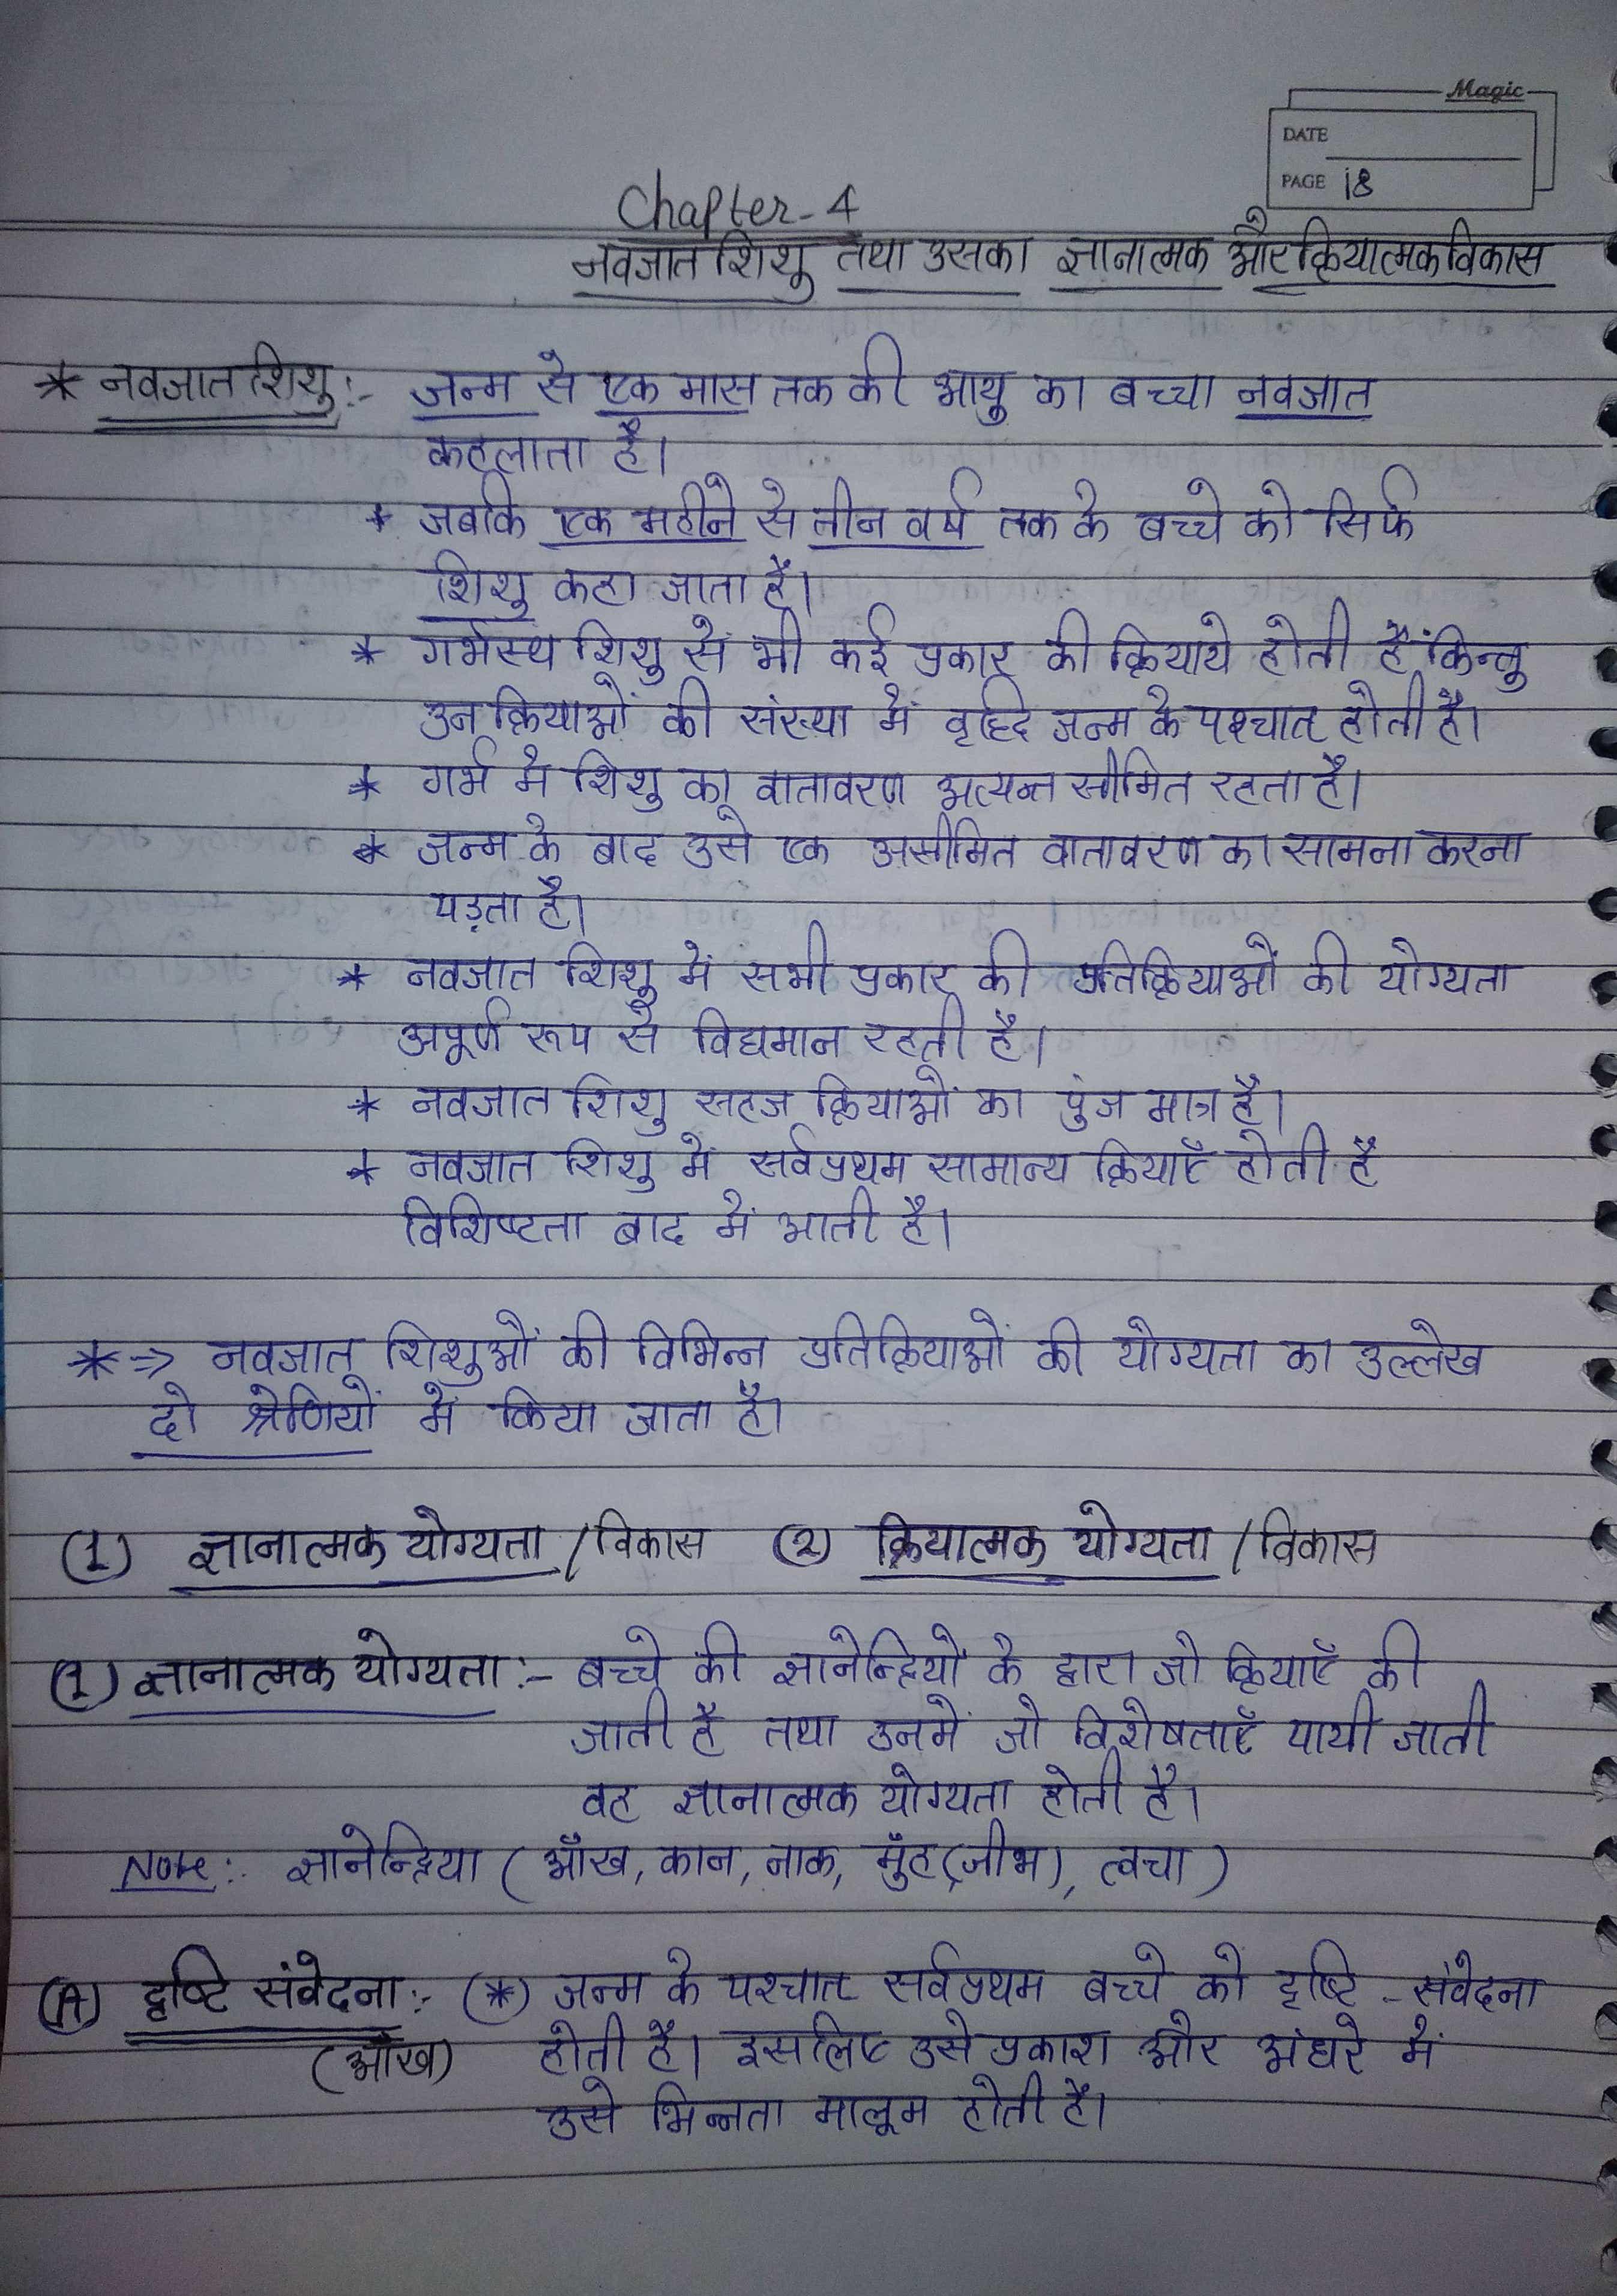 Magic
DATE
PAGE 18
Chapter-4
नवजात शिशु तथा उसका ज्ञानात्मक और क्रियात्मक विकास
* नवजात शिशु :- जन्म से एक मास तक की आयु का बच्चा नवजात
कहलाता है।
* जबकि एक महीने से तीन वर्ष तक के बच्चे को सिर्फ
शिशु कहा जाता है।
* गर्भस्थ शिशु से भी कई प्रकार की क्रियाये होती हैं किन्तु
उन क्रियाओं की संख्या में वृद्धि जन्म के पश्चात होती है।
* गर्भ मे शिशु का वातावरण अत्यन्त सीमित रहता है।
* जन्म के बाद उसे एक असीमित वातावरण का सामना करना
पड़ता है।
* नवजात शिशु में सभी प्रकार की प्रतिक्रियाओं की योग्यता
अपूर्ण रूप से विद्यमान रहती है।
* नवजात शिशु सहज क्रियाओं का पुंज मात्र है।
* नवजात शिशु में सर्वप्रथम सामान्य क्रियाएँ होती है
विशिष्टता बाद में आती है।
*=> नवजात शिशुओं की विभिन्न प्रतिक्रियाओं की योग्यता का उल्लेख
दो श्रेणियों में किया जाता है।
(1) ज्ञानात्मक योग्यता / विकास (2) क्रियात्मक योग्यता / विकास
(1) ज्ञानात्मक योग्यता :- बच्चे की ज्ञानेन्द्रियों के द्वारा जो क्रियाएँ की
जाती है तथा उनमें जो विशेषताएँ पायी जाती
वह ज्ञानात्मक योग्यता होती है।
Note :- ज्ञानेन्द्रिया ( आँख, कान, नाक, मुँह(जीभ), त्वचा )
(A) दृष्टि संवेदना :- (*) जन्म के पश्चात सर्वप्रथम बच्चे को दृष्टि - संवेदना
(आँख) होती है। इसलिए उसे प्रकाश और अंधरे में
उसे भिन्नता मालूम होती है।